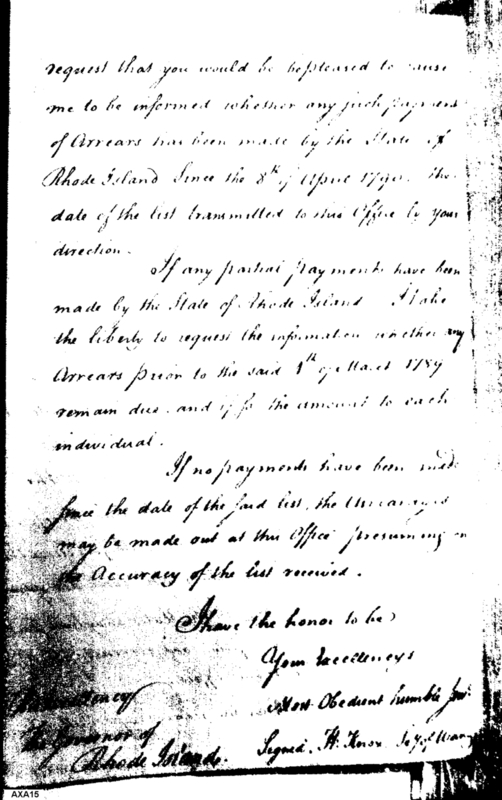 request that you would be be pleased to cause
me to be informed whether any such payment
of Arrears has been made by the State of
Rhode Island Since the 8th of April 1790. the
date of the list transmitted to this Office by your
direction.
If any partial payments have been
made by the State of Rhode Island I take
the liberty to request the information whether any
Arrears prior to the said 4th of March 1789
remain due, and if so the amount to each
individual.
If no payments have been made
since the date of the said list, the Arrearages
may be made out at this Office presuming on
the Accuracy of the list received.
I have the honor to be
Your Excellencys
Most Obedient humble Serv.
Signed, H. Knox Secy of War
His Excellency
The Governor of
Rhode Island.
AXA15